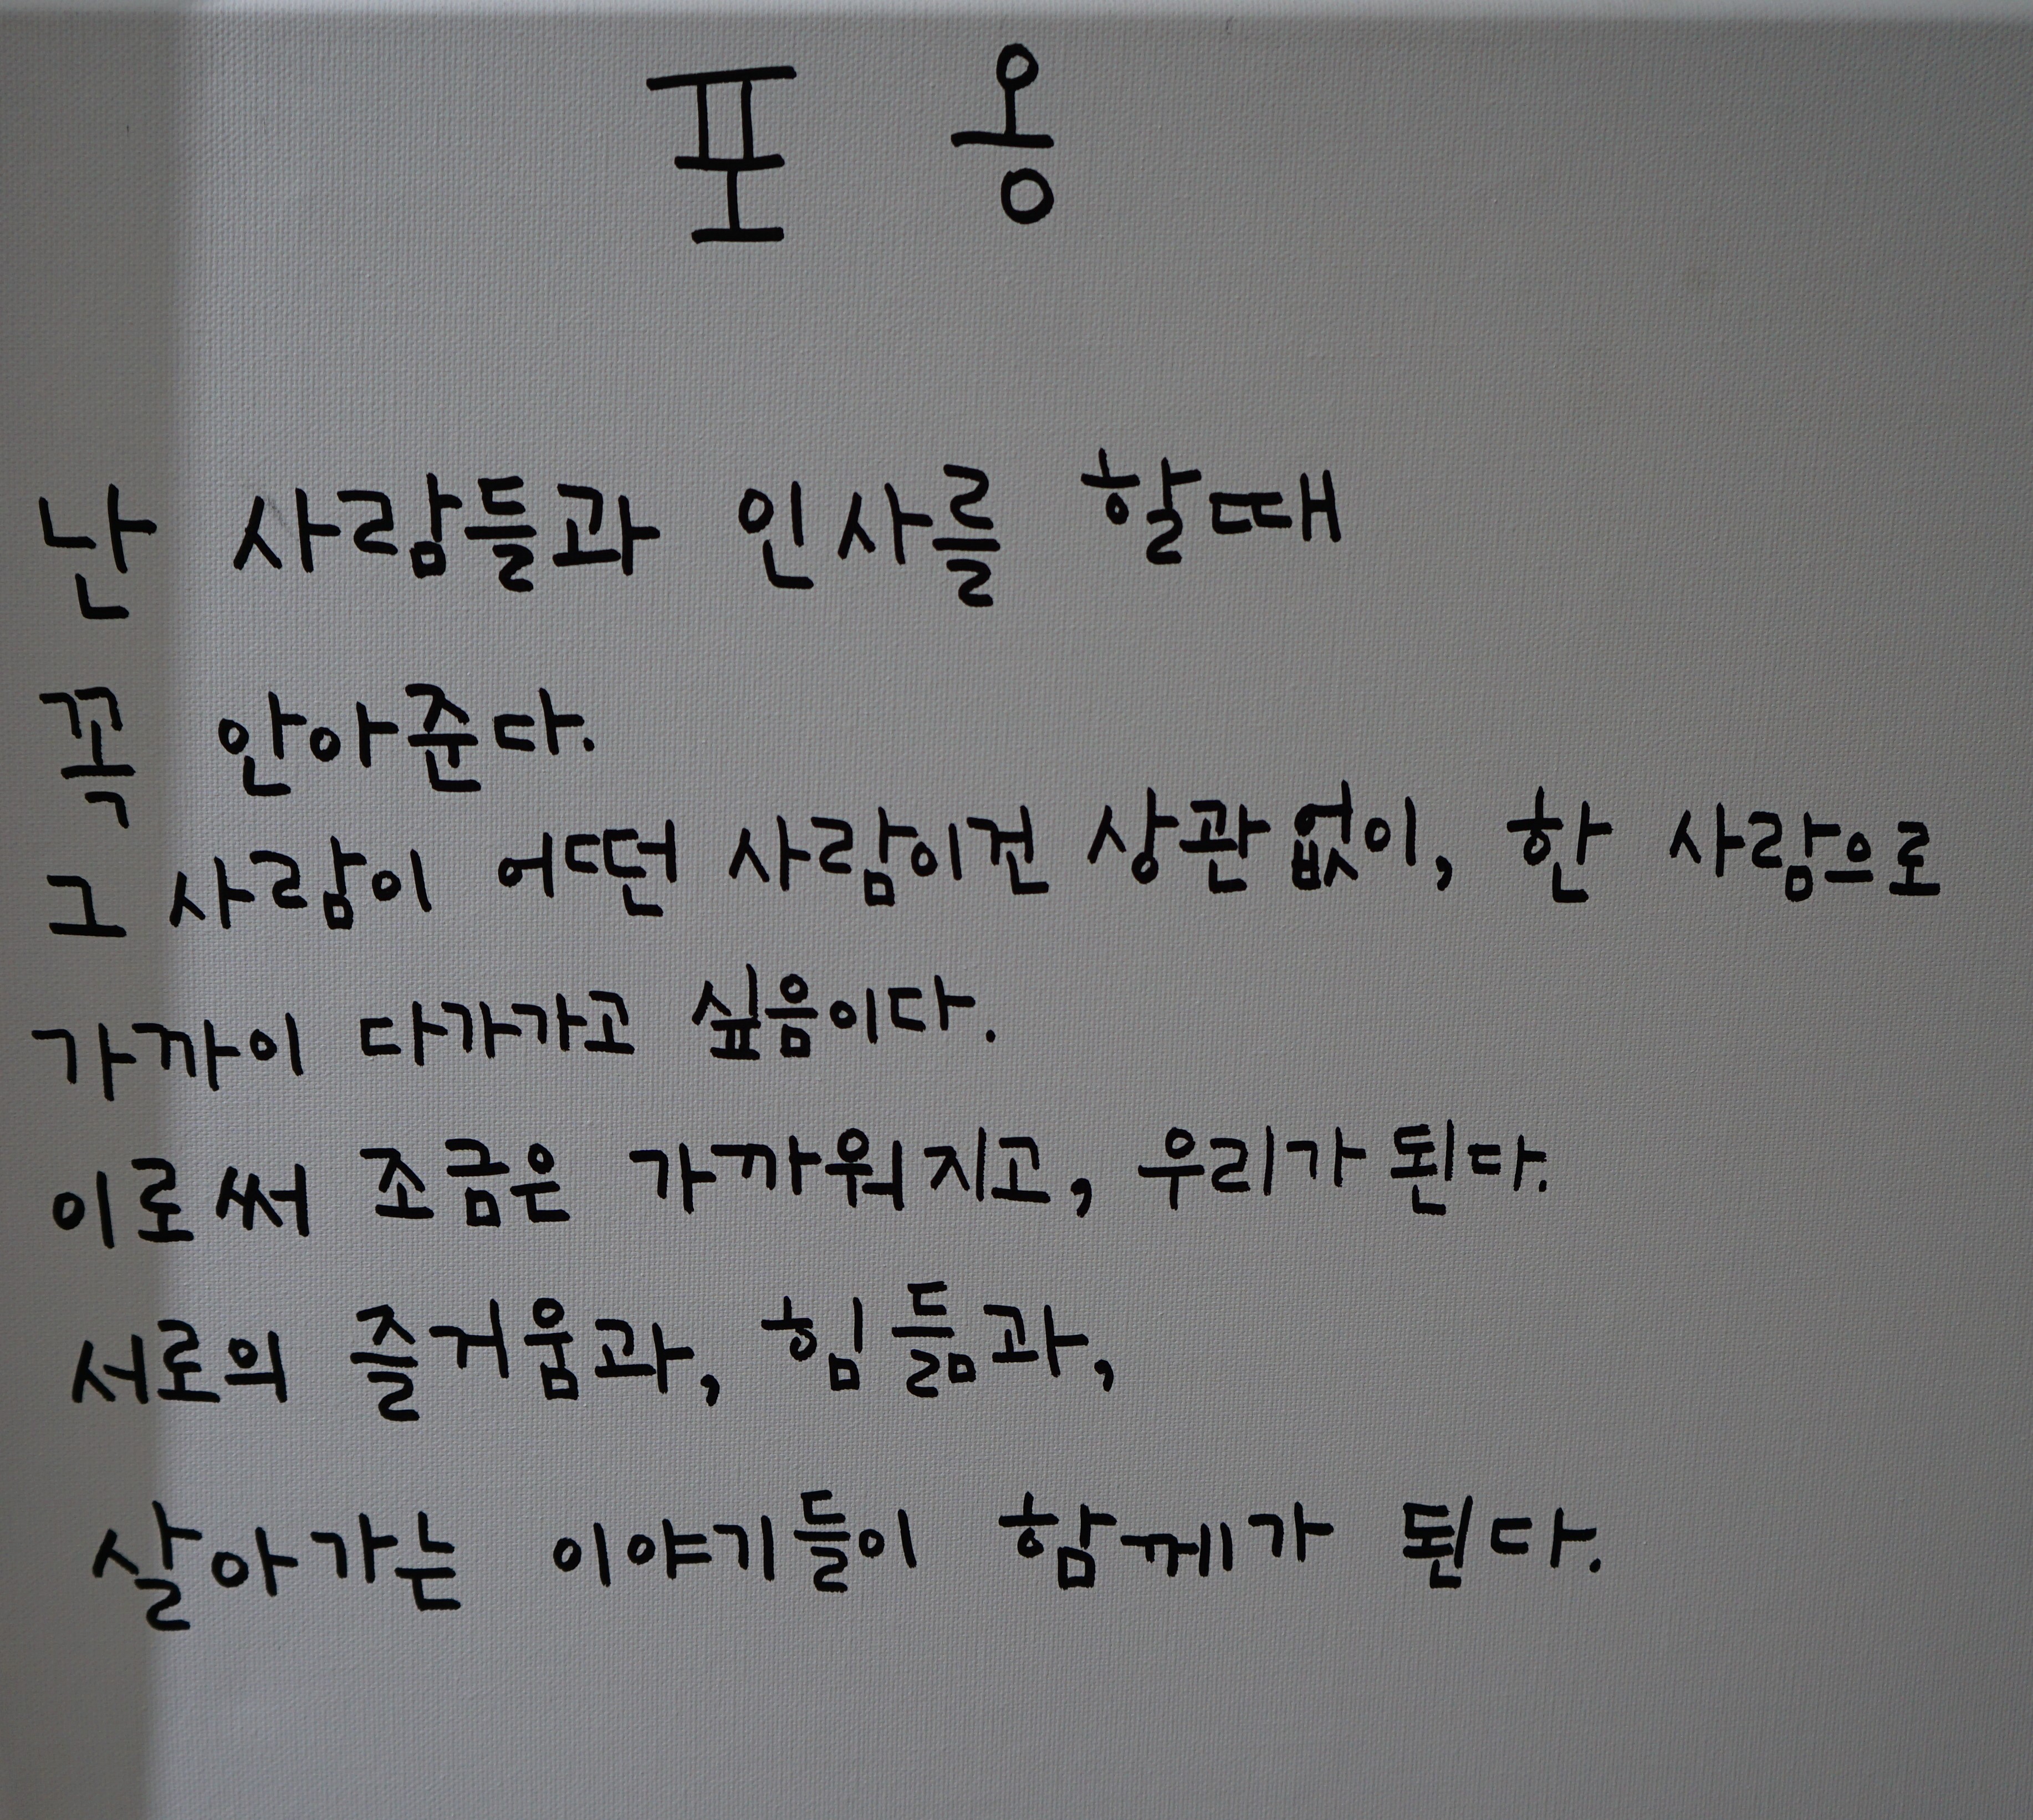 포 옹
난 사람들과 인사를 할때
꼭 안아준다.
그 사람이 어떤 사람이건 상관없이, 한 사람으로
가까이 다가가고 싶음이다.
이로써 조금은 가까워지고, 우리가 된다.
서로의 즐거움과, 힘듦과,
살아가는 이야기들이 함께가 된다.